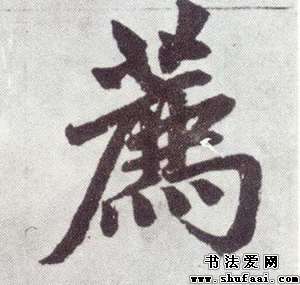 薦
书法爱网
www.shufaai.com